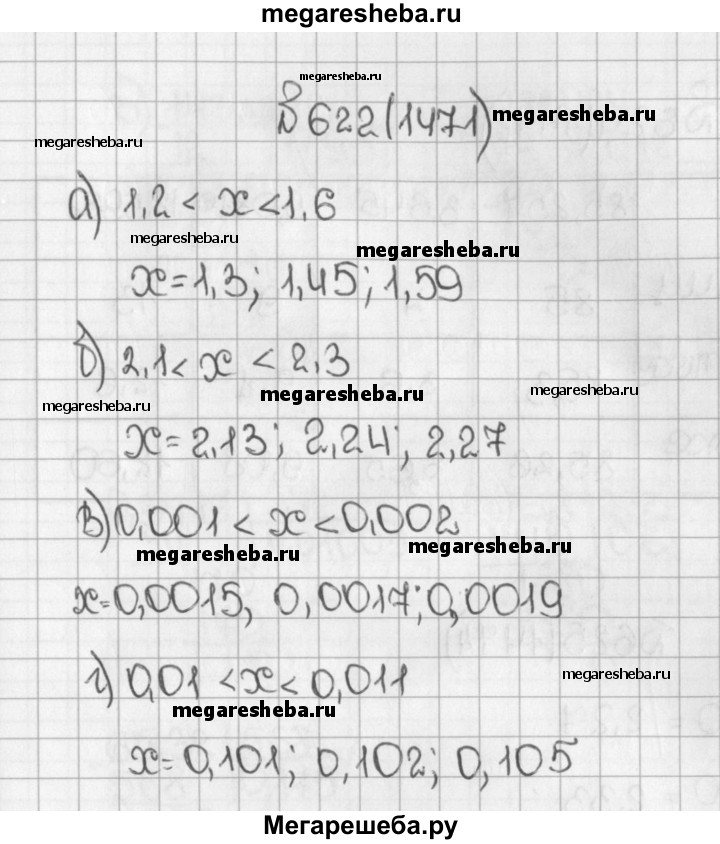 megaresheba.ru
megaresheba.ru
№622(1471) megaresheba.ru
megaresheba.ru
а) 1,2 < x < 1,6
megaresheba.ru
megaresheba.ru
x = 1,3; 1,45; 1,59
б) 2,1 < x < 2,3
megaresheba.ru megaresheba.ru
megaresheba.ru
x = 2,13; 2,24; 2,27
в) 0,001 < x < 0,002
megaresheba.ru megaresheba.ru
x = 0,0015, 0,0017; 0,0019
г) 0,01 < x < 0,011 megaresheba.ru
megaresheba.ru
x = 0,101; 0,102; 0,105
Мегарешеба.ру